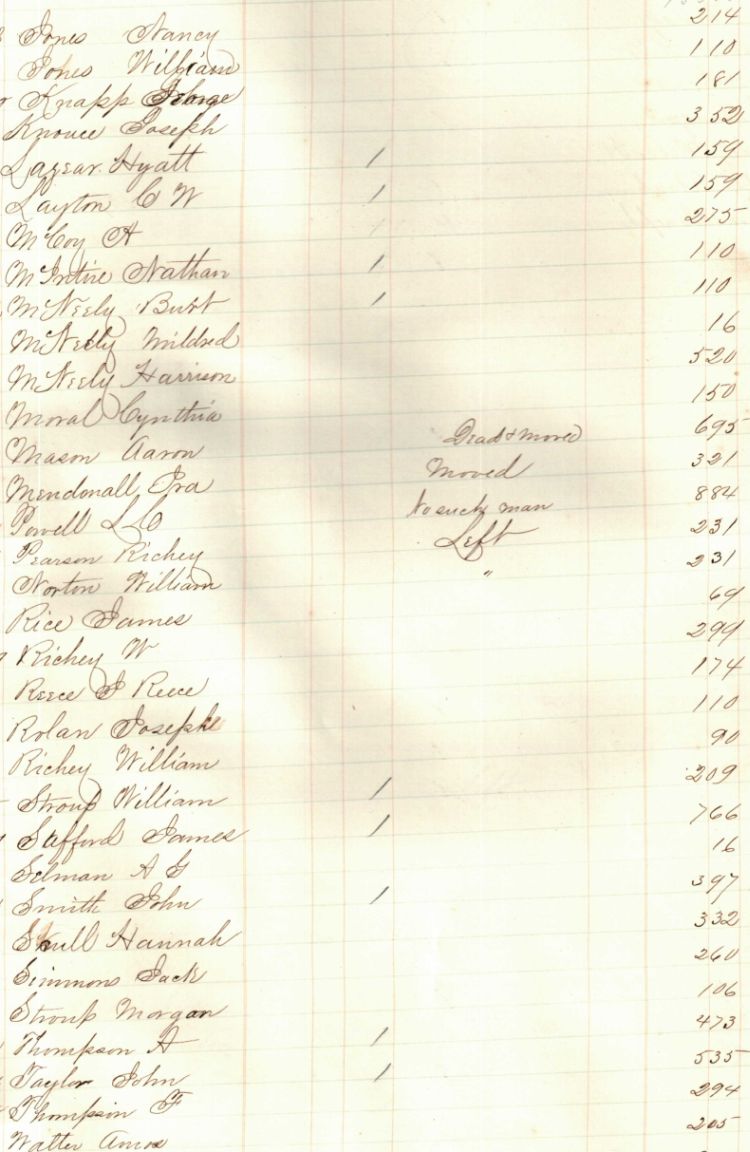 Jones Nancy 214
Jones William 110
Knapp George 181
Knouce Joseph 352
Lazear Hyatt / 159
Layton C W / 159
McCoy A 275
McIntire Nathan / 110
McNeely Burt / 110
McNeely Mildred 16
McNeely Harrison 520
Moral Cynthia 150
Mason Aaron Dead & moved 695
Mendonall Ira Moved 321
Powell L C No such man 884
Pearson Richey Left 231
Norton William " 231
Rice James 69
Richey W 299
Reece J Reece 174
Rolan Joseph 110
Richey William 90
Stroup William / 209
Safford James / 766
Selman A G 16
Smith John / 397
Skull Hannah 332
Simmons Jack 260
Stroup Morgan 106
Thompson A / 473
Taylor John / 535
Thompson F 294
Walter Amos 205